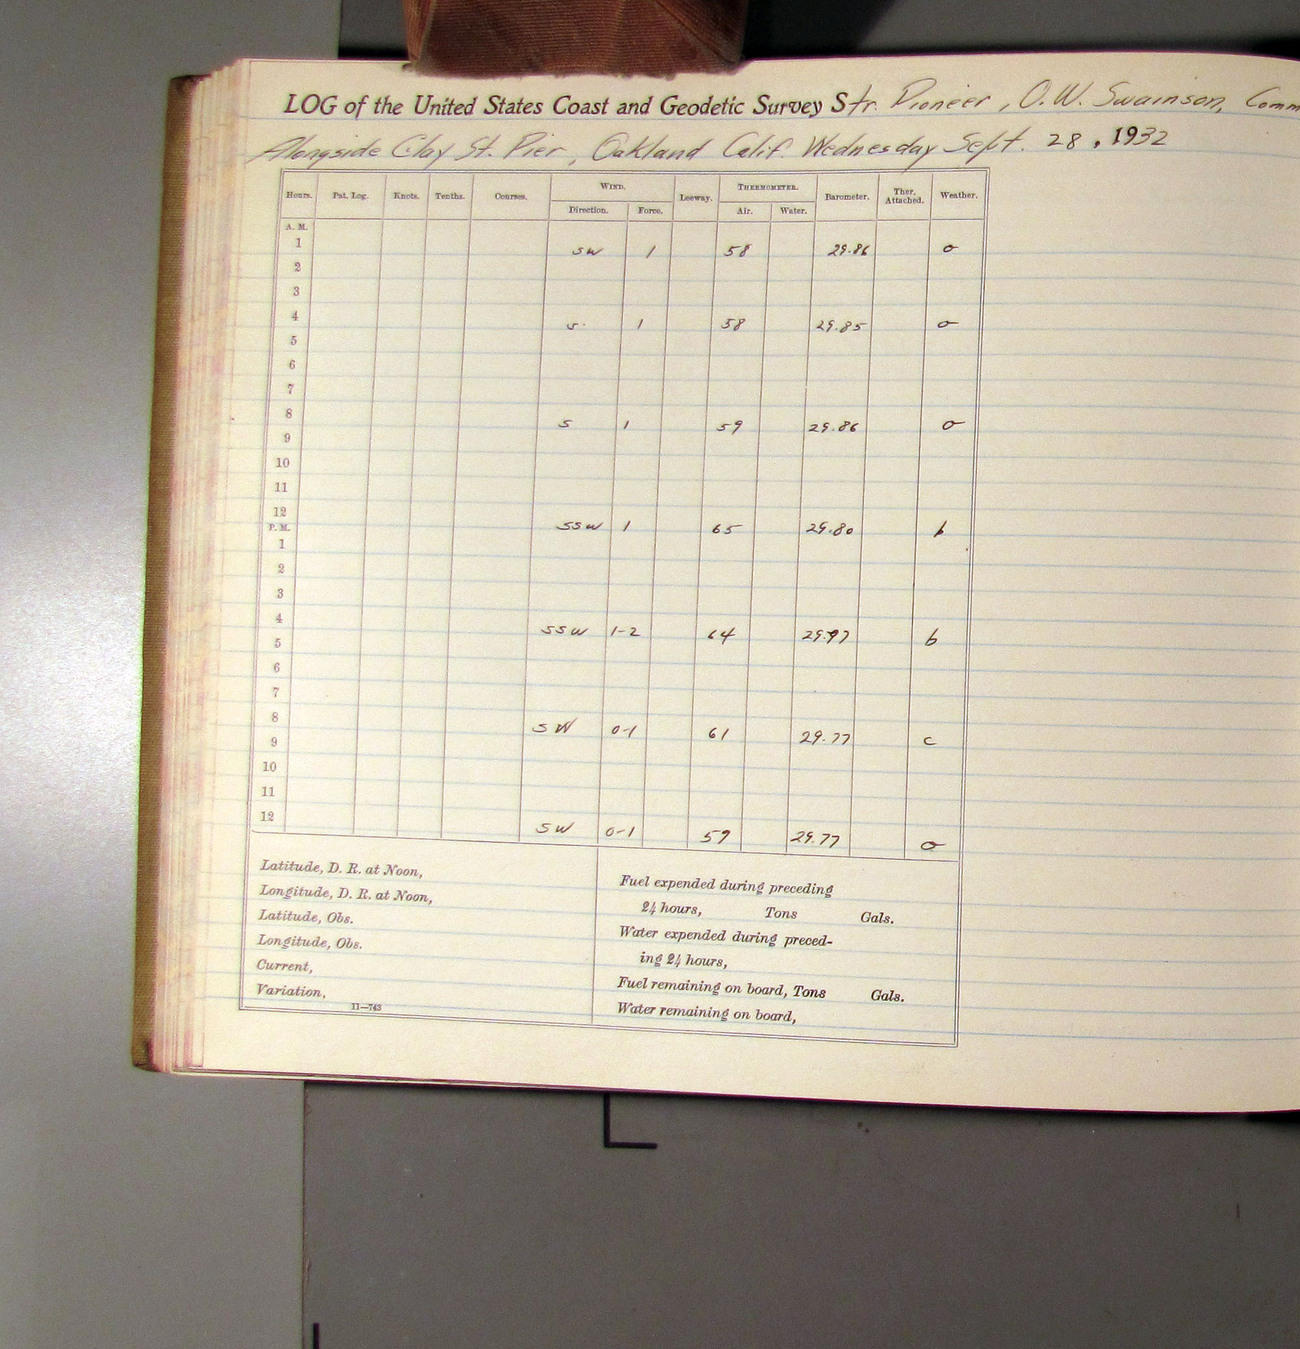 LOG of the United States Coast and Geodetic Survey Str. Pioneer, O.W. Swainson, Comm
Alongside Clay St. Pier, Oakland Calif. Wednesday Sept. 28, 1932
Hours. Pat. Log. Knots. Tenths. Courses. WIND. Leeway. THERMOMETER. Barometer. Ther. Attached. Weather.
Direction. Force. Air. Water.
A. M.
1 SW 1 58 29.86 o
2
3
4 S. 1 58 29.85 o
5
6
7
8 S 1 59 29.86 o
9
10
11
12 SSW 1 65 29.80 b
P. M.
1
2
3
4 SSW 1-2 64 29.77 b
5
6
7
8 SW 0-1 61 29.77 c
9
10
11
12 SW 0-1 59 29.77 o
Latitude, D. R. at Noon,
Longitude, D. R. at Noon,
Latitude, Obs.
Longitude, Obs.
Current,
Variation,
11—743
Fuel expended during preceding
24 hours, Tons Gals.
Water expended during preced-
ing 24 hours,
Fuel remaining on board, Tons Gals.
Water remaining on board,